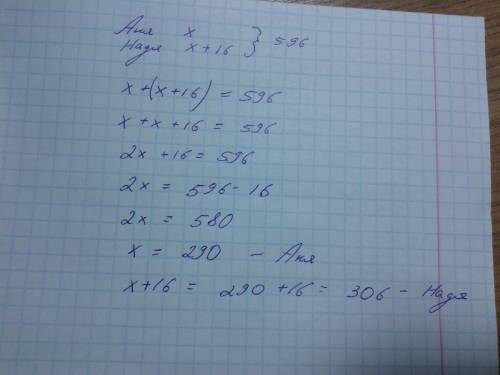 Аня x } 596
Надя x+16
x+(x+16) = 596
x+x+16 = 596
2x+16 = 596
2x = 596-16
2x = 580
x = 290 - Аня
x+16 = 290+16 = 306 - Надя